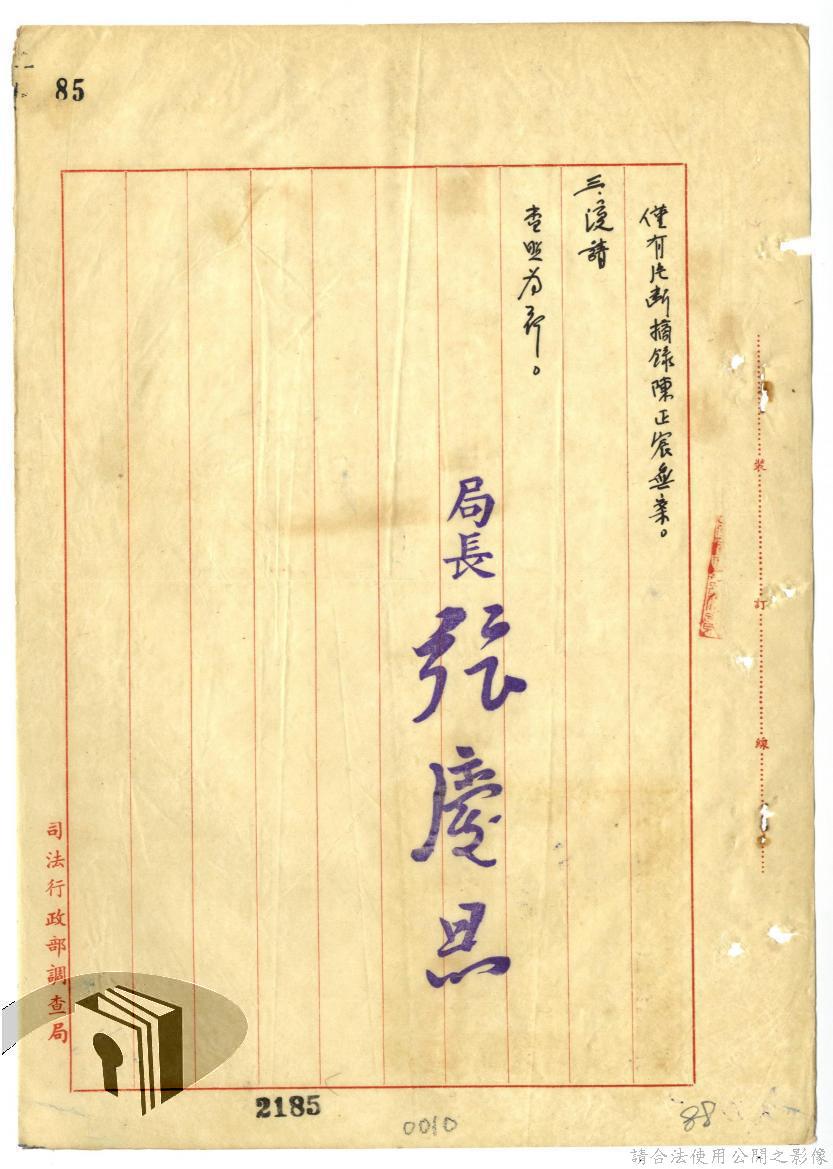 85
僅有片斷摘錄陳正宸無案。
三、復請
查照為荷。
局長 張慶恩
裝
訂
線
司法行政部調查局
2185
0010
88
請合法使用公開之影像